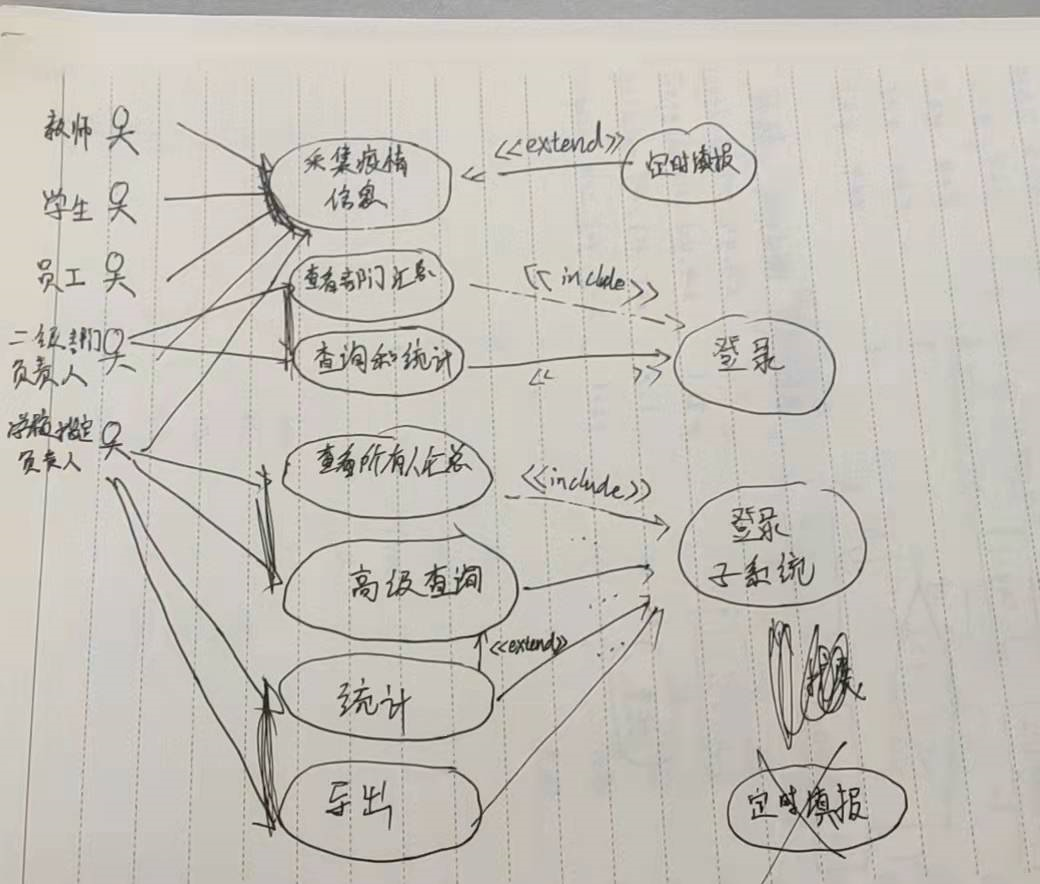 教师
学生
员工
二级部门
负责人
学校指定
负责人
采集疫情
信息
<<extend>>
定时填报
查看部门汇总
<< include >>
查询和统计
<< >>
登录
查看所有人汇总
<<include>>
登录
子系统
高级查询
<<extend>>
统计
导出
定时填报